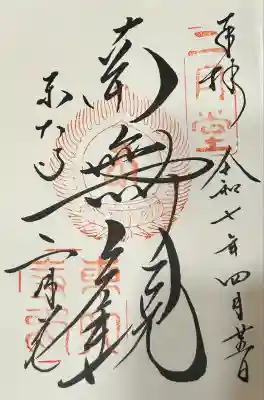 二月堂
奉拝 令和七年四月廿五日
南無観
東大寺
二月堂